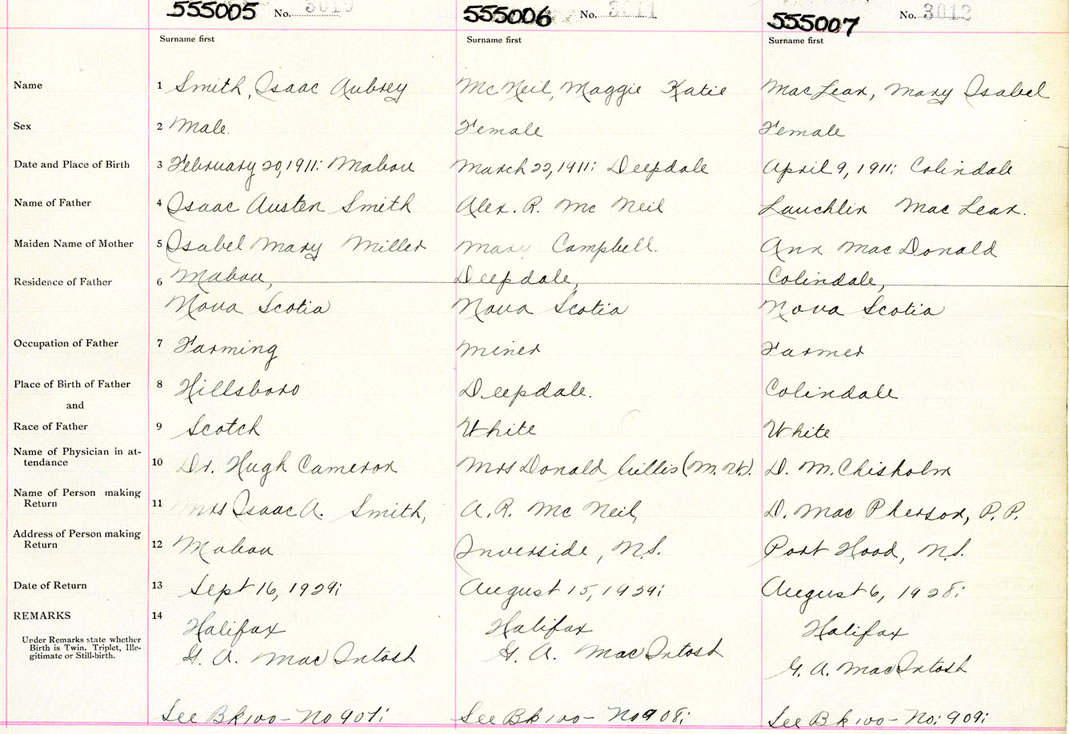 555005 No. 3010 555006 No. 3011 555007 No. 3012
Surname first Surname first Surname first
Name 1 Smith, Isaac Aubrey McNeil, Maggie Katie MacLean, Mary Isabel
Sex 2 Male. Female Female
Date and Place of Birth 3 February 20, 1911: Mabou March 22, 1911: Deepdale April 9, 1911: Colindale
Name of Father 4 Isaac Austen Smith Alex. R. McNeil Lauchlin MacLean.
Maiden Name of Mother 5 Isabel Mary Miller Mary Campbell. Ann MacDonald
Residence of Father 6 Mabou, Deepdale, Colindale,
Nova Scotia Nova Scotia Nova Scotia
Occupation of Father 7 Farming Miner Farmer
Place of Birth of Father 8 Hillsboro Deepdale. Colindale
and
Race of Father 9 Scotch White White
Name of Physician in at-
tendance 10 Dr. Hugh Cameron Mrs Donald Gillis (M.W). D. M. Chisholm
Name of Person making
Return 11 Mrs Isaac A. Smith, A. R. McNeil, D. MacPherson, P. P.
Address of Person making
Return 12 Mabou Inverside, N.S. Port Hood, N.S.
Date of Return 13 Sept 16, 1929: August 15, 1929: August 6, 1928:
REMARKS 14 Halifax Halifax Halifax
Under Remarks state whether
Birth is Twin, Triplet, Ille-
gitimate or Still-birth.
G. A. MacIntosh G. A. MacIntosh G. A. MacIntosh
See Bk 100 - No 907: See Bk 100 - No 908: See Bk 100 - No: 909: